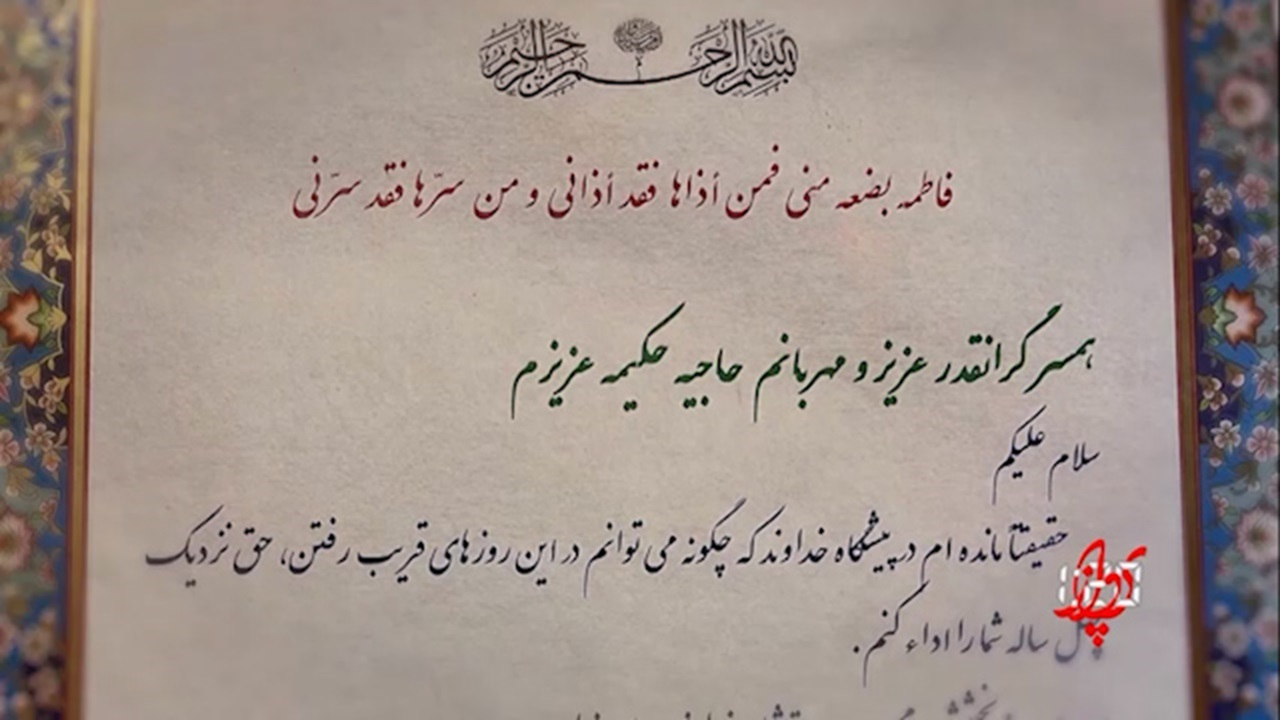 بسم الله الرحمن الرحیم
فاطمه بضعه منی فمن أذاها فقد أذانی و من سرّها فقد سرّنی
همسر گرانقدر عزیز و مهربانم حاجیه حکیمه عزیزم
سلام علیکم
حقیقتاً مانده ام در پیشگاه خداوند که چگونه می توانم در این روزهای قریب رفتن، حق نزدیک
ساله شما را اداء کنم.